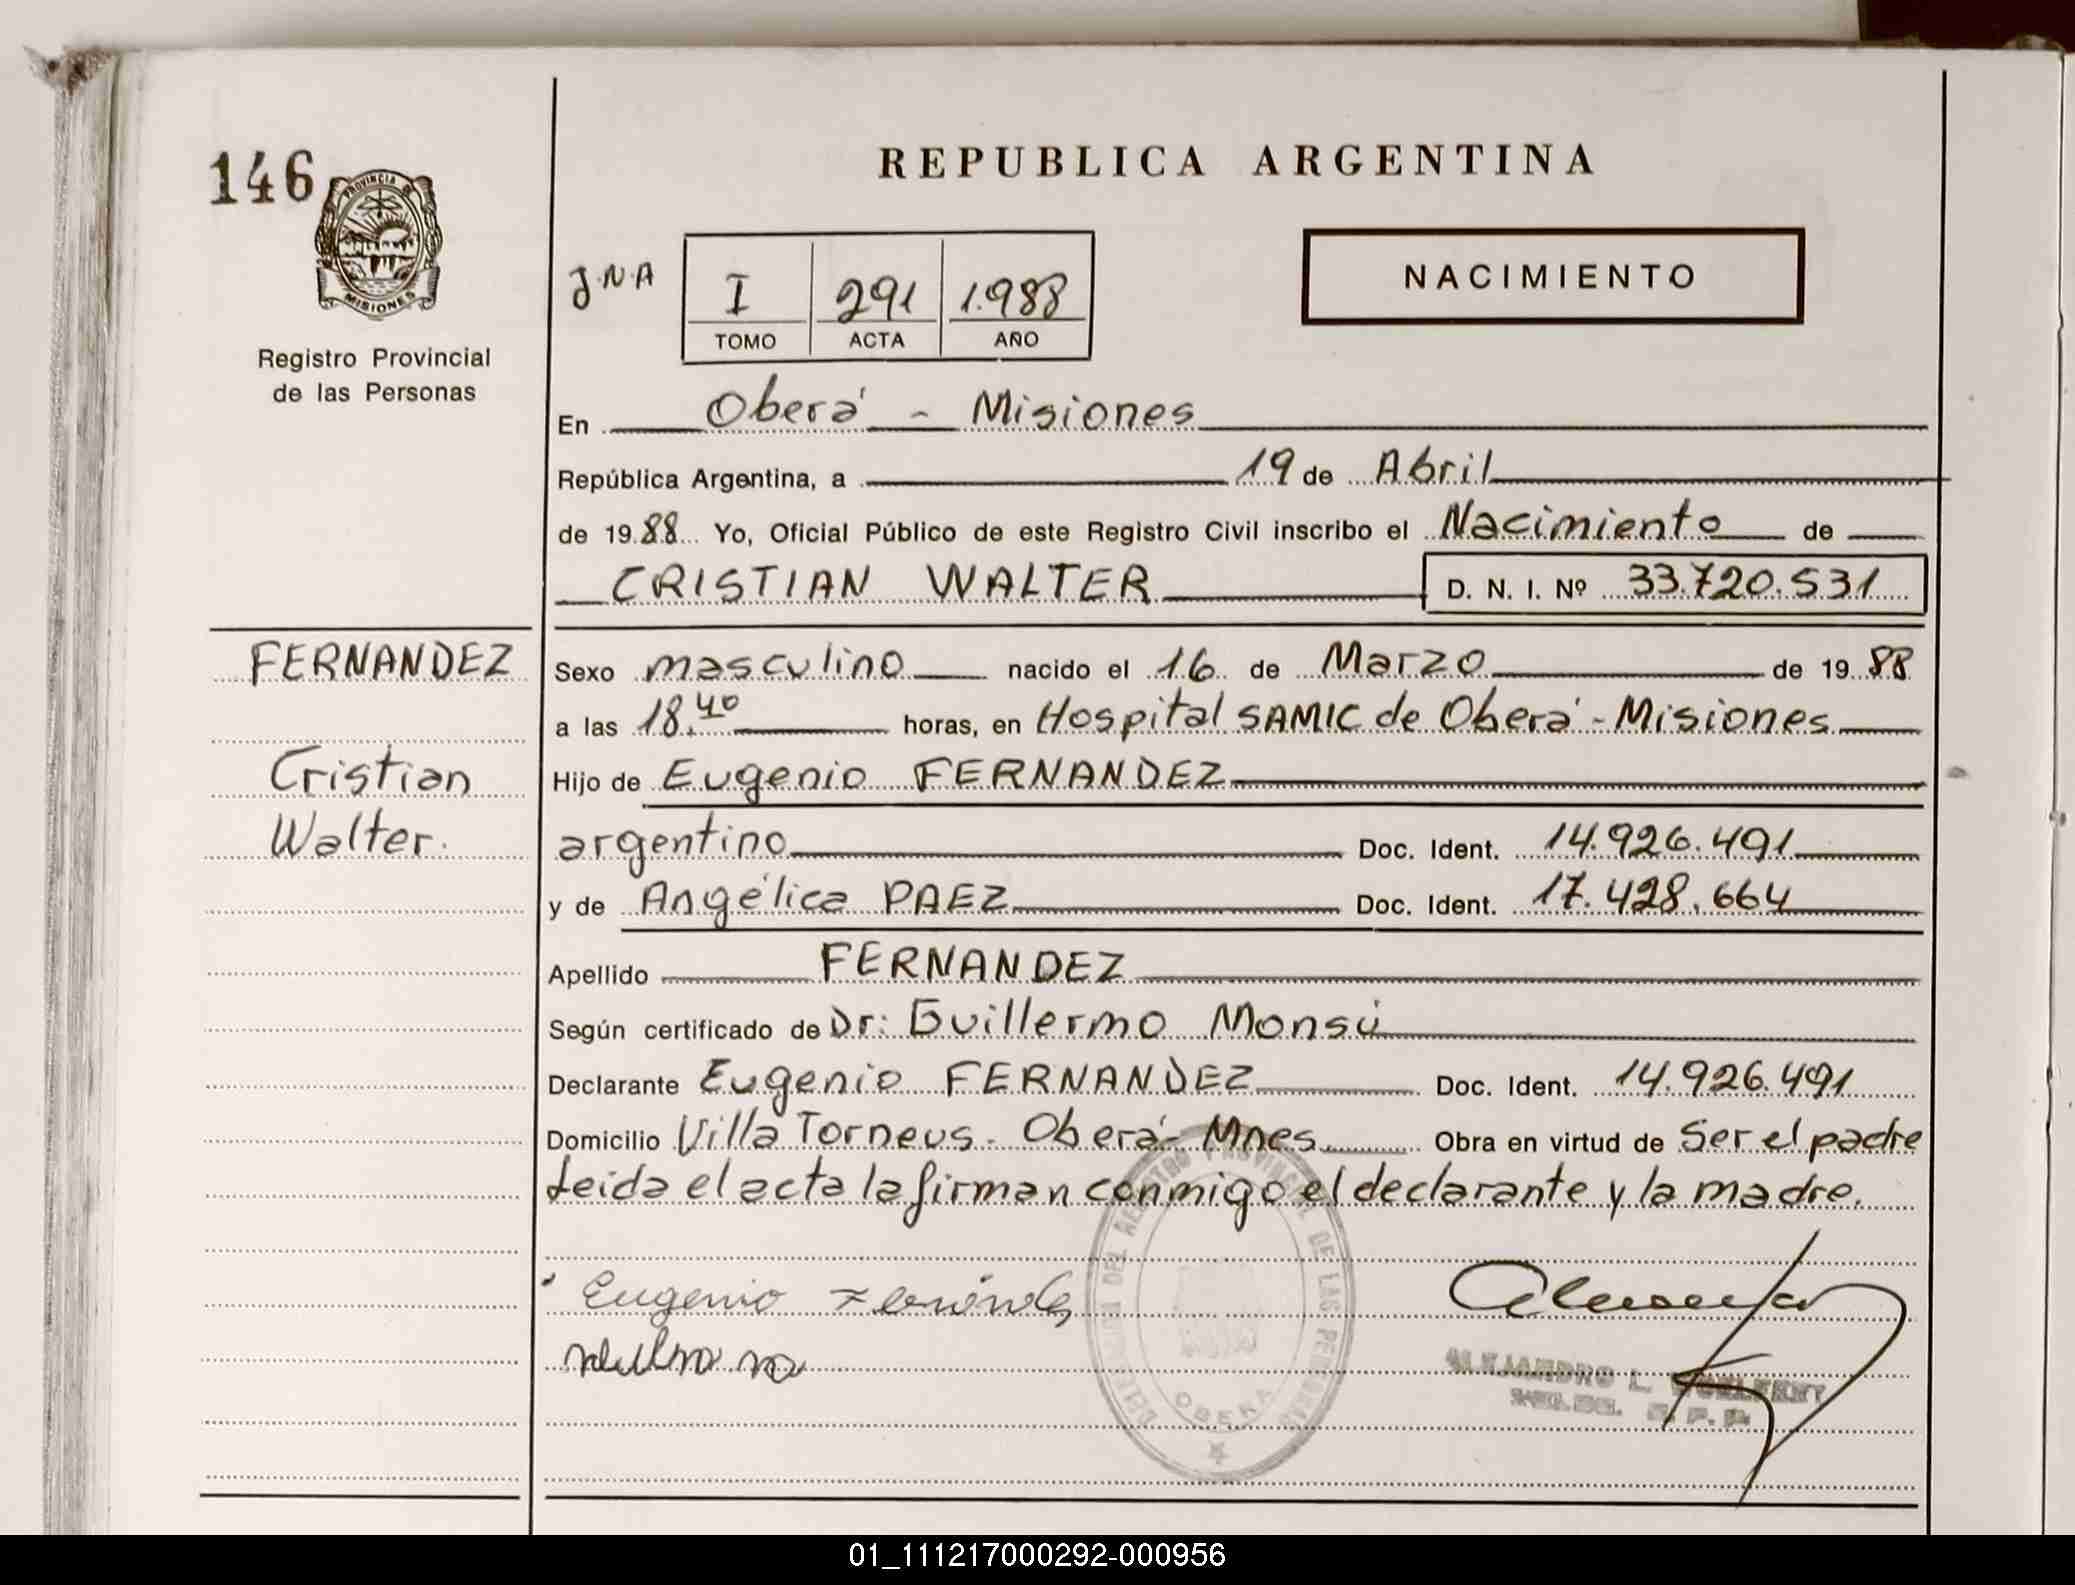 146
PROVINCIA DE
MISIONES
Registro Provincial
de las Personas
REPUBLICA ARGENTINA
J.N.A
I 291 1.988
TOMO ACTA AÑO
NACIMIENTO
En Oberá - Misiones
República Argentina, a 19 de Abril
de 1988 Yo, Oficial Público de este Registro Civil inscribo el Nacimiento de
CRISTIAN WALTER D. N. I. Nº 33.720.531
FERNANDEZ
Cristian
Walter.
Sexo masculino nacido el 16 de Marzo de 1988
a las 18.40 horas, en Hospital SAMIC de Oberá - Misiones
Hijo de Eugenio FERNANDEZ
argentino Doc. Ident. 14.926.491
y de Angélica PAEZ Doc. Ident. 17.428.664
Apellido FERNANDEZ
Según certificado de Dr: Guillermo Monsú
Declarante Eugenio FERNANDEZ Doc. Ident. 14.926.491
Domicilio Villa Torneus - Oberá - Mnes Obra en virtud de Ser el padre
Leida el acta la firman conmigo el declarante y la madre.
DEL REGISTRO PROVINCIAL DE LAS PERSONAS
OBERA
Eugenio
ALEJANDRO L.
01_111217000292-000956